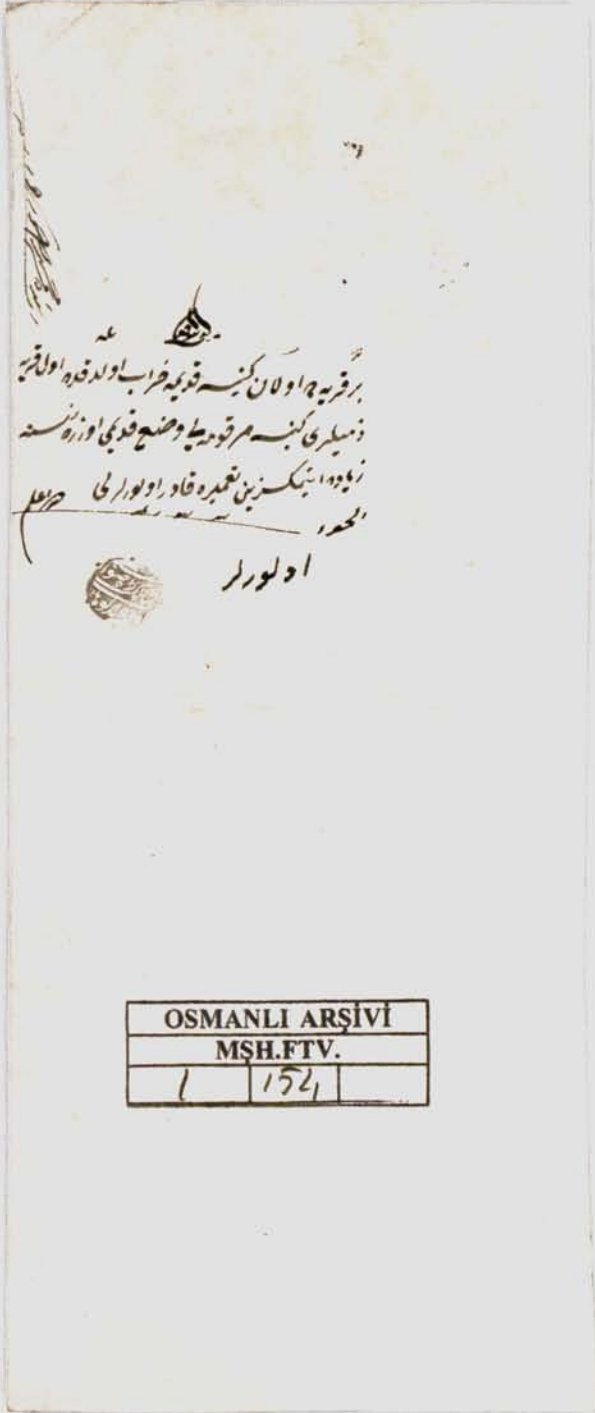 بر قریه ده اولان كنیسهٔ قدیمه خراب اولدقده اول قریه
ذمیلری كنیسهٔ مرقومه یی وضع قدیمی اوزره نسنه
زیاده ایتمكسزین تعمیره قادر اولورلرمی
الجواب
اولورلر
OSMANLI ARŞİVİ
MŞH.FTV.
1 154